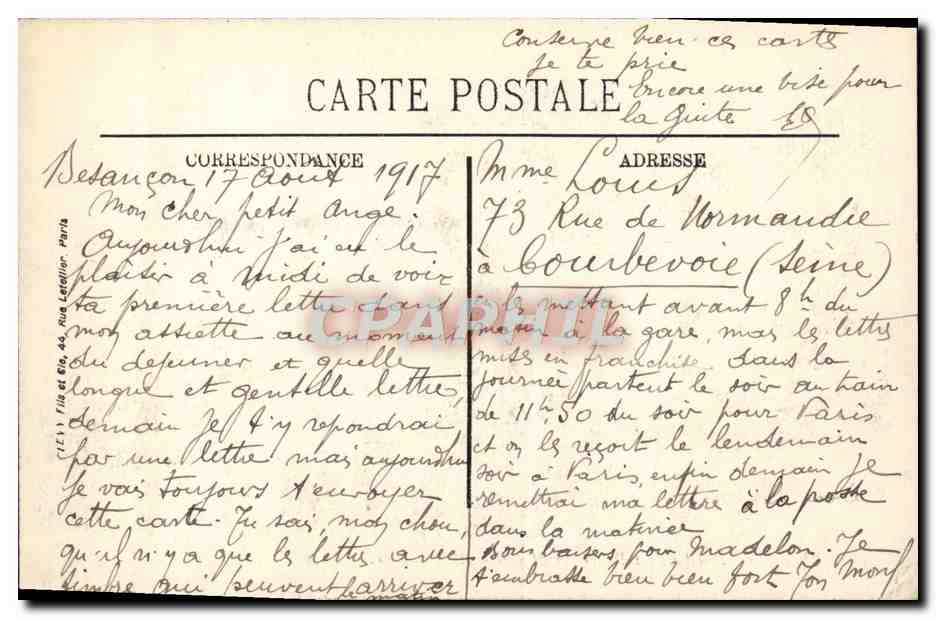 Conserve bien ces cartes
je te prie
Encore une bise pour
la Guite
CARTE POSTALE
CORRESPONDANCE
ADRESSE
Besançon 17 août 1917
Mon cher petit ange.
Aujourd'hui j'ai eu le
plaisir à midi de voir
ta première lettre dans
mon assiette au moment
du dejeuner et quelle
longue et gentille lettre,
demain je t'y repondrai
par une lettre mais aujourd'hui
je vais toujours t'envoyer
cette carte. Tu sais, mon chou,
qu'il n'y a que les lettres avec
timbre qui peuvent arriver
le matin
Mme Louis
73 Rue de Normandie
à Courbevoie (Seine)
en les mettant avant 8h du
matin à la gare, mais les lettres
mises en franchise dans la
journée partent le soir au train
de 11h,50 du soir pour Paris
et on les reçoit le lendemain
soir à Paris, enfin demain je
remettrai ma lettre à la poste
dans la matinée
Bons baisers pour Madelon. Je
t'embrasse bien bien fort Ton
Fils et Cie, 44, Rue Letellier, Paris
CPARHIL